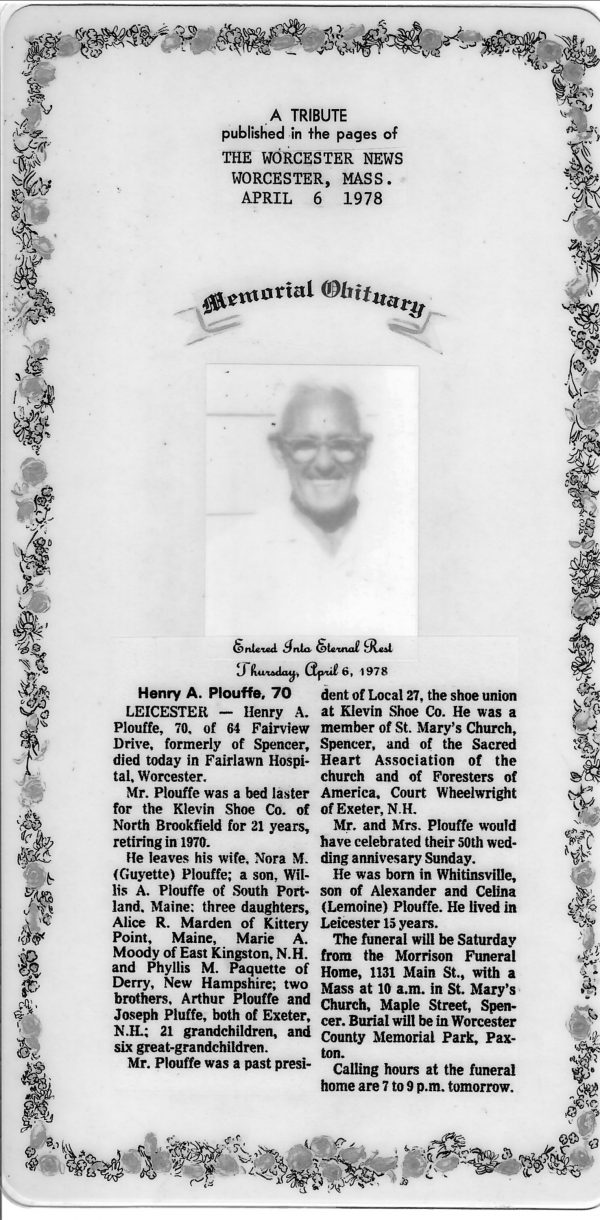 A TRIBUTE
published in the pages of
THE WORCESTER NEWS
WORCESTER, MASS.
APRIL 6 1978
Memorial Obituary
Entered Into Eternal Rest
Thursday, April 6, 1978
Henry A. Plouffe, 70
LEICESTER — Henry A.
Plouffe, 70, of 64 Fairview
Drive, formerly of Spencer,
died today in Fairlawn Hospi-
tal, Worcester.
Mr. Plouffe was a bed laster
for the Klevin Shoe Co. of
North Brookfield for 21 years,
retiring in 1970.
He leaves his wife, Nora M.
(Guyette) Plouffe; a son, Wil-
lis A. Plouffe of South Port-
land, Maine; three daughters,
Alice R. Marden of Kittery
Point, Maine, Marie A.
Moody of East Kingston, N.H.
and Phyllis M. Paquette of
Derry, New Hampshire; two
brothers, Arthur Plouffe and
Joseph Pluffe, both of Exeter,
N.H.; 21 grandchildren, and
six great-grandchildren.
Mr. Plouffe was a past presi-
dent of Local 27, the shoe union
at Klevin Shoe Co. He was a
member of St. Mary's Church,
Spencer, and of the Sacred
Heart Association of the
church and of Foresters of
America, Court Wheelwright
of Exeter, N.H.
Mr. and Mrs. Plouffe would
have celebrated their 50th wed-
ding annivesary Sunday.
He was born in Whitinsville,
son of Alexander and Celina
(Lemoine) Plouffe. He lived in
Leicester 15 years.
The funeral will be Saturday
from the Morrison Funeral
Home, 1131 Main St., with a
Mass at 10 a.m. in St. Mary's
Church, Maple Street, Spen-
cer. Burial will be in Worcester
County Memorial Park, Pax-
ton.
Calling hours at the funeral
home are 7 to 9 p.m. tomorrow.